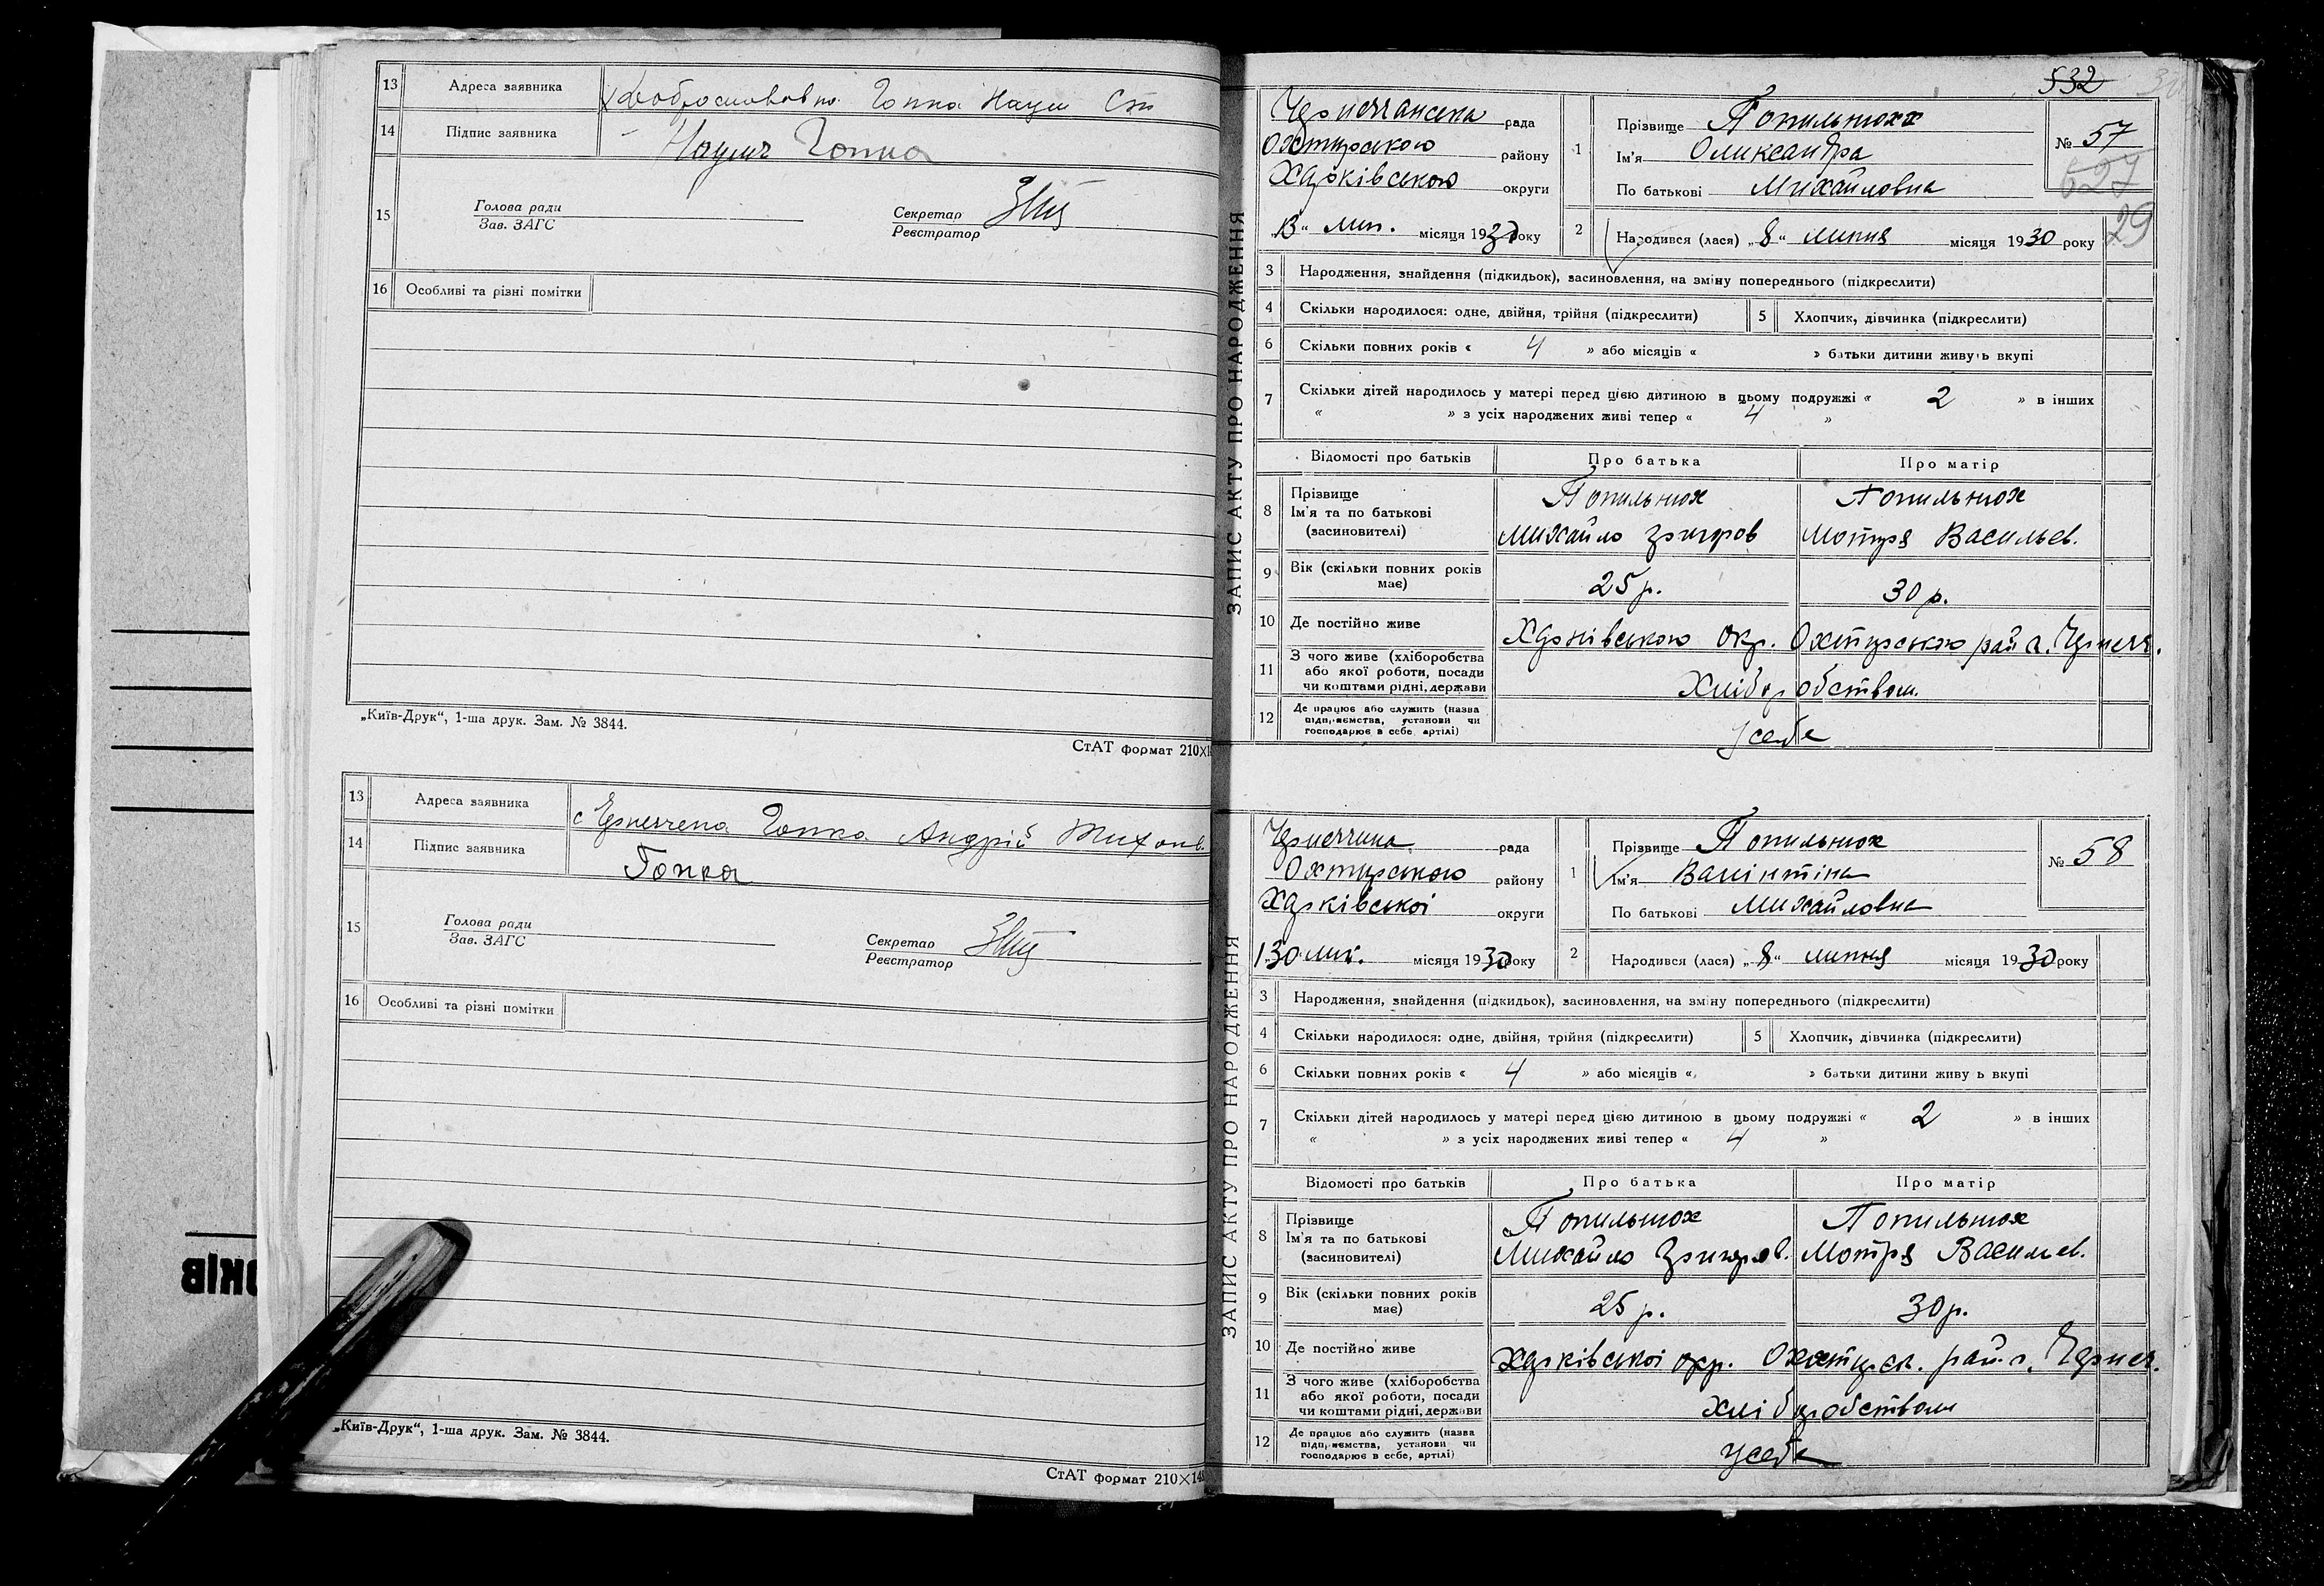 13 Адреса заявника Гопка Наум
14 Підпис заявника Наум Гопка
15 Голова ради
Зав. ЗАГС
Секретар
Реєстратор
16 Особливі та різні помітки
„Київ-Друк“, 1-ша друк. Зам. № 3844.
СтАТ формат 210×1
13 Адреса заявника с Гопка Андрій Тихон.
14 Підпис заявника Гопка
15 Голова ради
Зав. ЗАГС
Секретар
Реєстратор
16 Особливі та різні помітки
„Київ-Друк“, 1-ша друк. Зам. № 3844.
СтАТ формат 210×148
ОКІВ
532
ЗАПИС АКТУ ПРО НАРОДЖЕННЯ
Чернеччанська рада
Охтирською району
Харківською округи
„13“ лип. місяця 1930 року
1 Прізвище Попильнюх
Ім'я Олександра
По батькові Михайловна
№ 57
527
29
2 Народився (лася) „8“ липня місяця 1930 року
3 Народження, знайдення (підкидьок), засиновлення, на зміну попереднього (підкреслити)
4 Скільки народилося: одне, двійня, трійня (підкреслити) 5 Хлопчик, дівчинка (підкреслити)
6 Скільки повних років « 4 » або місяців « » батьки дитини живуть вкупі
7 Скільки дітей народилось у матері перед цією дитиною в цьому подружжі « 2 » в інших
« » з усіх народжених живі тепер « 4 »
Відомості про батьків Про батька Про матір
8 Прізвище Попильнюх Попильнюх
Ім'я та по батькові
(засиновителі) Михайло Григоров Мотря Васильев.
9 Вік (скільки повних років має) 25 р. 30 р.
10 Де постійно живе Харківською окр. Охтирською рай с. Чернеч.
11 З чого живе (хліборобства
або якої роботи, посади
чи коштами рідні, держави Хліборобством
12 Де працює або служить (назва
підприємства, установи чи
господарює в себе, артілі) у себе
ЗАПИС АКТУ ПРО НАРОДЖЕННЯ
Чернеччина рада
Охтирською району
Харківської округи
лип. місяця 1930 року
1 Прізвище Попильнюх
Ім'я Валінтіна
По батькові Михайловна
№ 58
2 Народився (лася) „8“ липня місяця 1930 року
3 Народження, знайдення (підкидьок), засиновлення, на зміну попереднього (підкреслити)
4 Скільки народилося: одне, двійня, трійня (підкреслити) 5 Хлопчик, дівчинка (підкреслити)
6 Скільки повних років « 4 » або місяців « » батьки дитини живуть вкупі
7 Скільки дітей народилось у матері перед цією дитиною в цьому подружжі « 2 » в інших
« » з усіх народжених живі тепер « 4 »
Відомості про батьків Про батька Про матір
8 Прізвище Попильнюх Попильнюх
Ім'я та по батькові
(засиновителі) Михайло Григоров. Мотря Васильев.
9 Вік (скільки повних років має) 25 р. 30 р.
10 Де постійно живе Харківської окр. Охтирськ. рай. с. Чернеч.
11 З чого живе (хліборобства
або якої роботи, посади
чи коштами рідні, держави хліборобством
12 Де працює або служить (назва
підприємства, установи чи
господарює в себе, артілі) у себе